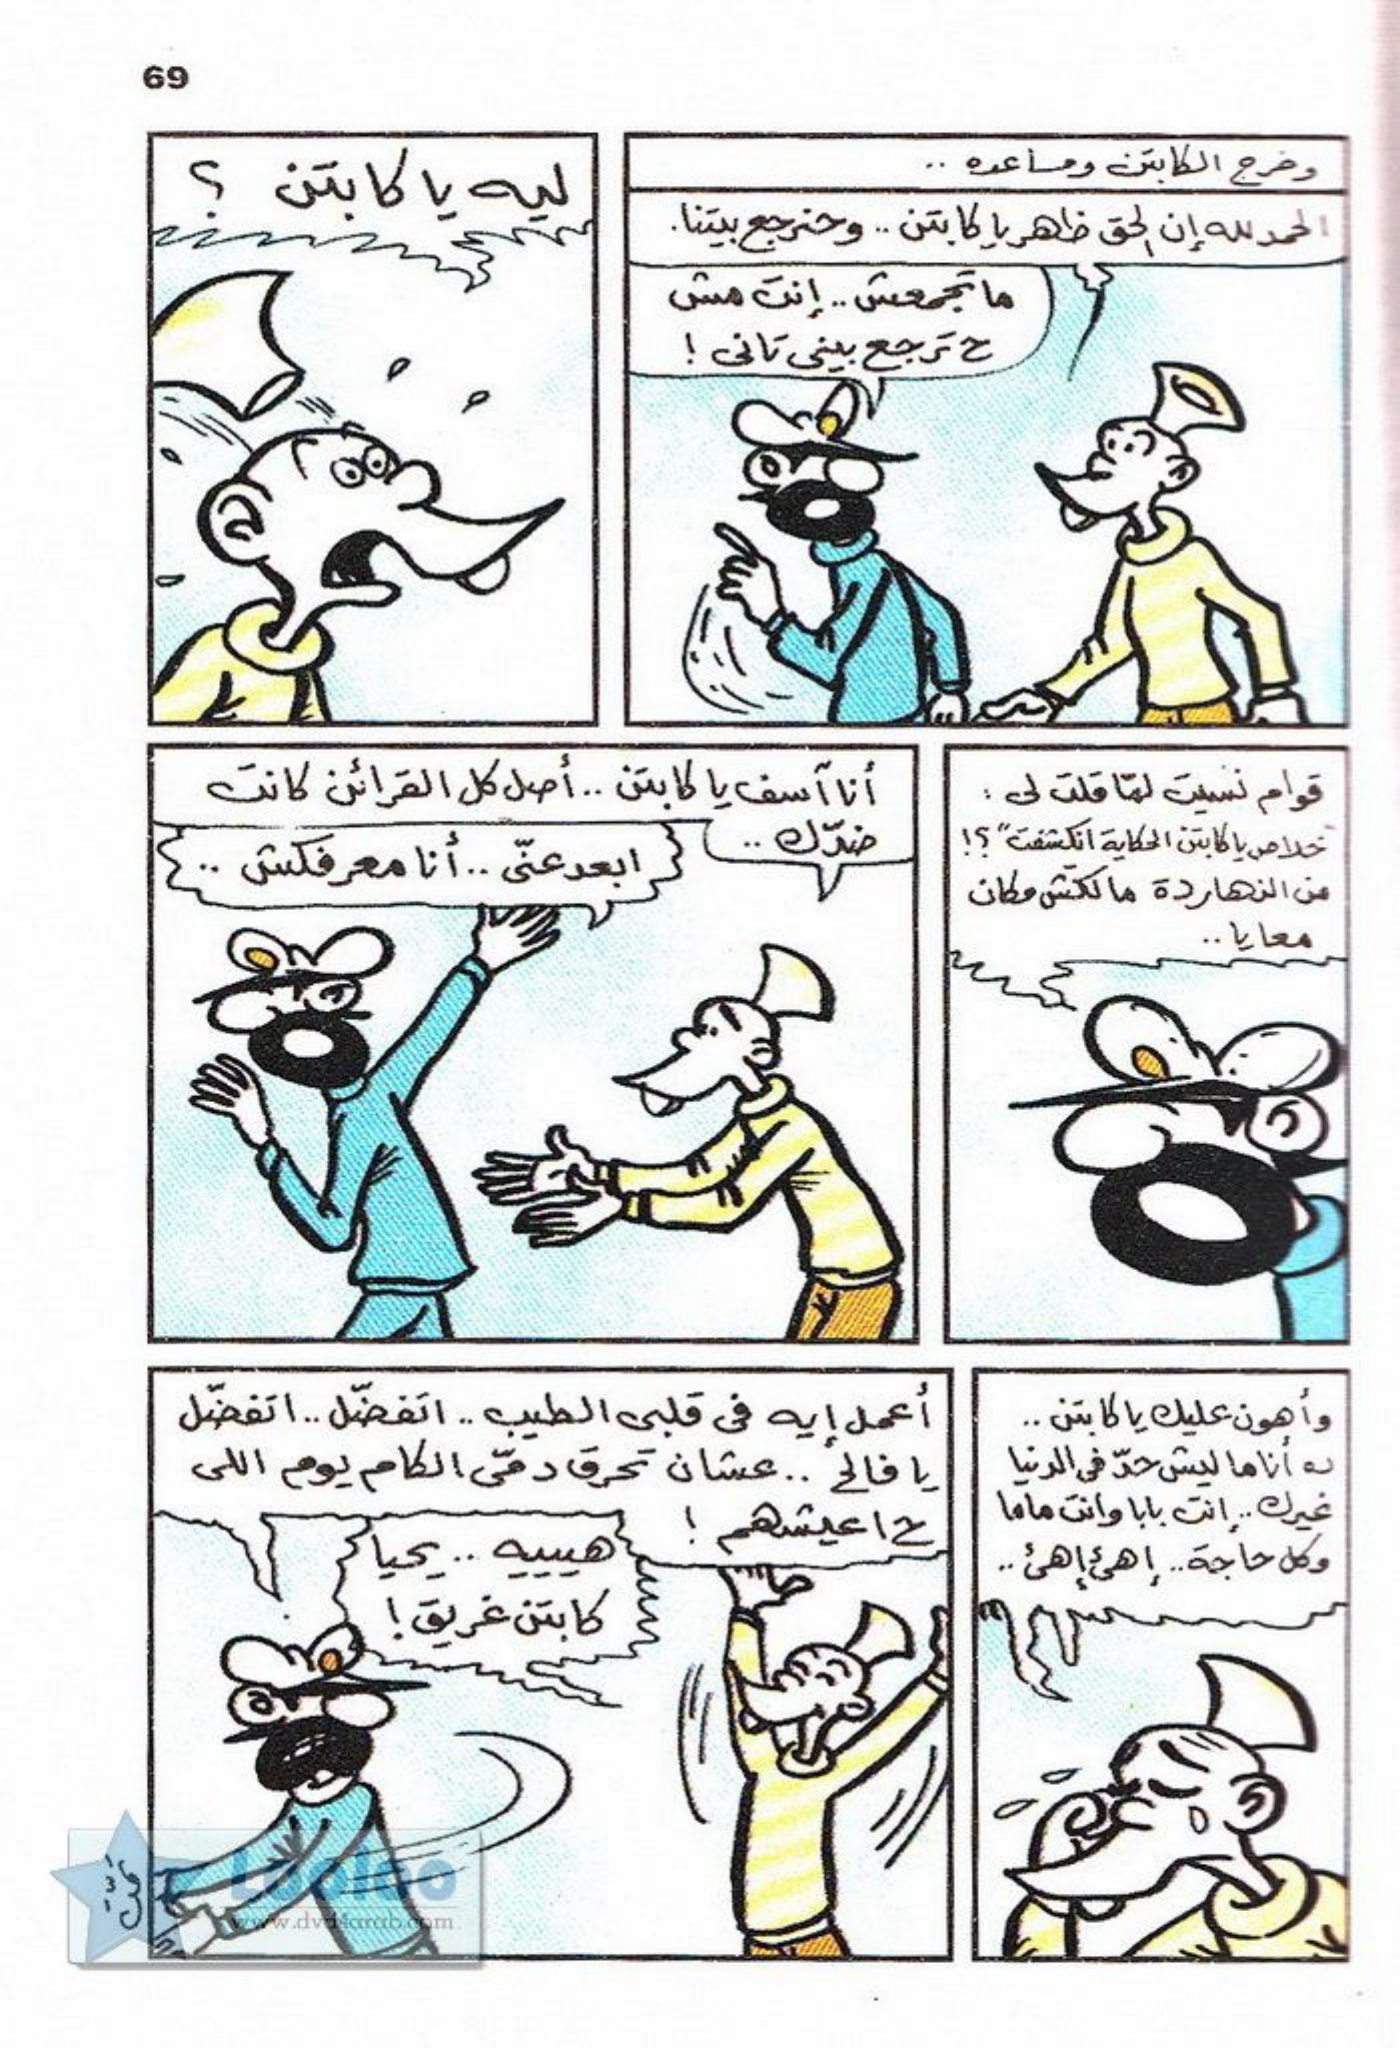 69
وخرج الكابتن ومساعده ..
الحمد لله إن الحق ظاهر يا كابتن .. وحنرجع بيتنا.
ما تجمعش .. إنت مش
ح ترجع بيتى تانى !
ليه يا كابتن ؟
قوام نسيت لمّا قلت لى :
"خلاص يا كابتن الحكاية انكشفت" ؟!
من النهاردة مالكش مكان
معايا ..
أنا آسف يا كابتن .. أصل كل القرائن كانت
ضدّك ..
ابعد عنّى .. أنا معرفكش ..
وأهون عليك يا كابتن ..
ده أنا ماليش حدّ فى الدنيا
غيرك .. إنت بابا وانت ماما
وكل حاجة .. إهئ إهئ ..
أعمل إيه فى قلبى الطيب .. اتفضّل .. اتفضّل
يا فالح .. عشان تحرق دمّى الكام يوم اللى
ح اعيشهم !
هيييه .. يحيا
كابتن غريق !
Looloo
www.dvd4arab.com